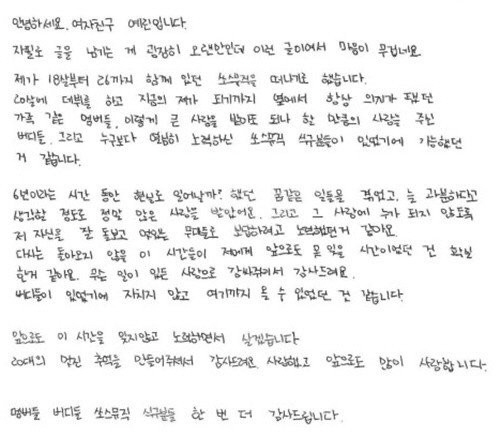 안녕하세요. 여자친구 예린입니다.
자필로 글을 남기는 게 굉장히 오랜만인데 이런 글이여서 마음이 무겁네요.
제가 18살부터 26까지 함께 있던 쏘스뮤직을 떠나게로 했습니다.
20살에 데뷔를 하고 지금의 제가 되기까지 옆에서 항상 의지가 돼줬던
가족 같은 멤버들, 이렇게 큰 사랑을 받아도 되나 할 만큼의 사랑을 주신
버디들, 그리고 누구보다 열심히 노력하신 쏘스뮤직 식구분들이 있었기에 가능했던
거 같습니다.
6년이라는 시간 동안 현실로 일어날까? 했던 꿈같은 일들을 겪었고, 늘 과분하다고
생각할 정도로 정말 많은 사랑을 받았어요. 그리고 그 사랑에 누가 되지 않도록
저 자신을 잘 돌보고 멋있는 무대들로 보답하려고 노력했던거 같아요.
다시는 돌아오지 않을 이 시간들이 저에게 앞으로도 못 잊을 시간이었던 건 확실
한거 같아요. 무슨 일이 있든 사랑으로 감싸줘서 감사드려요.
버디들이 있었기에 지치지 않고 여기까지 올 수 있었던 건 같습니다.
앞으로도 이 시간을 잊지않고 노력하면서 살겠습니다
20대의 멋진 추억을 만들어주셔서 감사드려요. 사랑했고 앞으로도 많이 사랑합니다.
멤버들 버디들 쏘스뮤직 식구분들 한 번 더 감사드립니다.